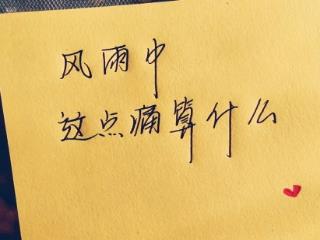 风雨中
这点痛算什么